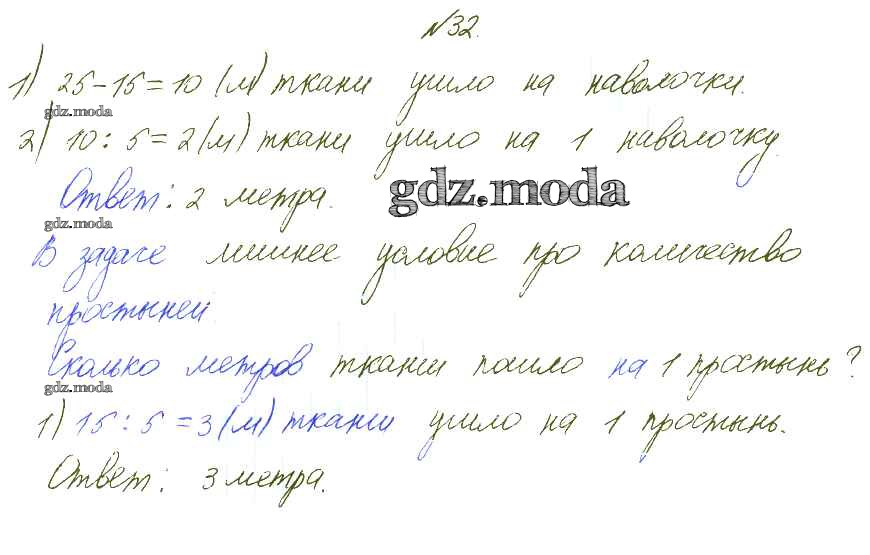 №32.
1) 25-15=10 (м) ткани ушло на наволочки.
gdz.moda
2) 10 : 5=2 (м) ткани ушло на 1 наволочку.
Ответ: 2 метра.
gdz.moda
gdz.moda
В задаче лишнее условие про количество
простыней.
Сколько метров ткани пошло на 1 простынь?
gdz.moda
1) 15 : 5 =3 (м) ткани ушло на 1 простынь.
Ответ: 3 метра.